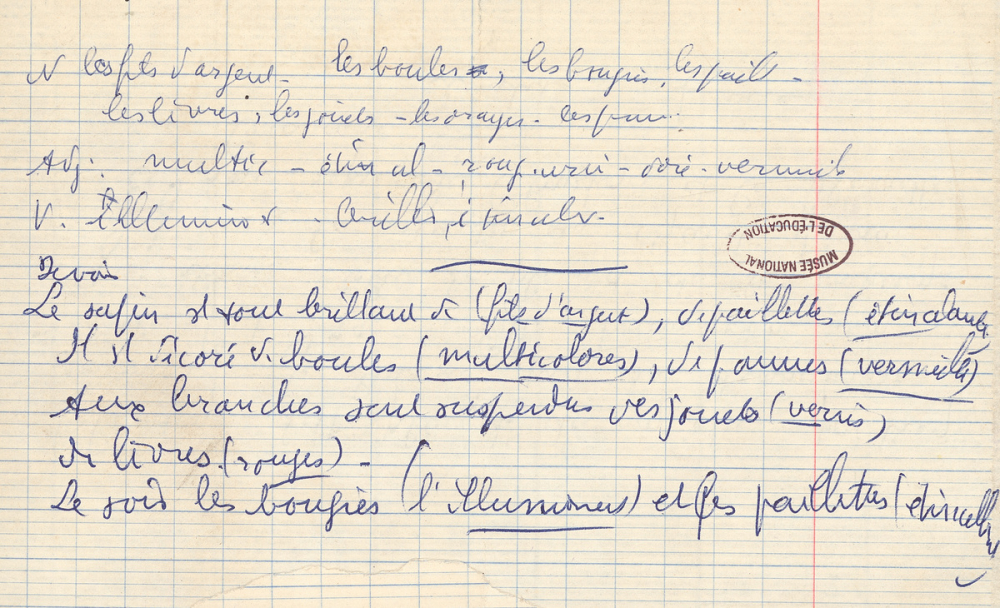 N les fils d'argent - les boules, les bougies, les paill -
les livres, les jouets - les oranges - les pom
Adj. multic - étincel - roug. verni - doré - vermeil
V. illuminer - briller, étinceler -
MUSÉE NATIONAL
DE L'ÉDUCATION
Devoir
Le sapin est tout brillant de (fils d'argent), de paillettes (étincelantes
Il est décoré de boules (multicolores), de pommes (vermeilles)
Aux branches sont suspendus des jouets (vernis)
de livres (rouges) -
Le soir les bougies (l'illuminent) et les paillettes (étincellent